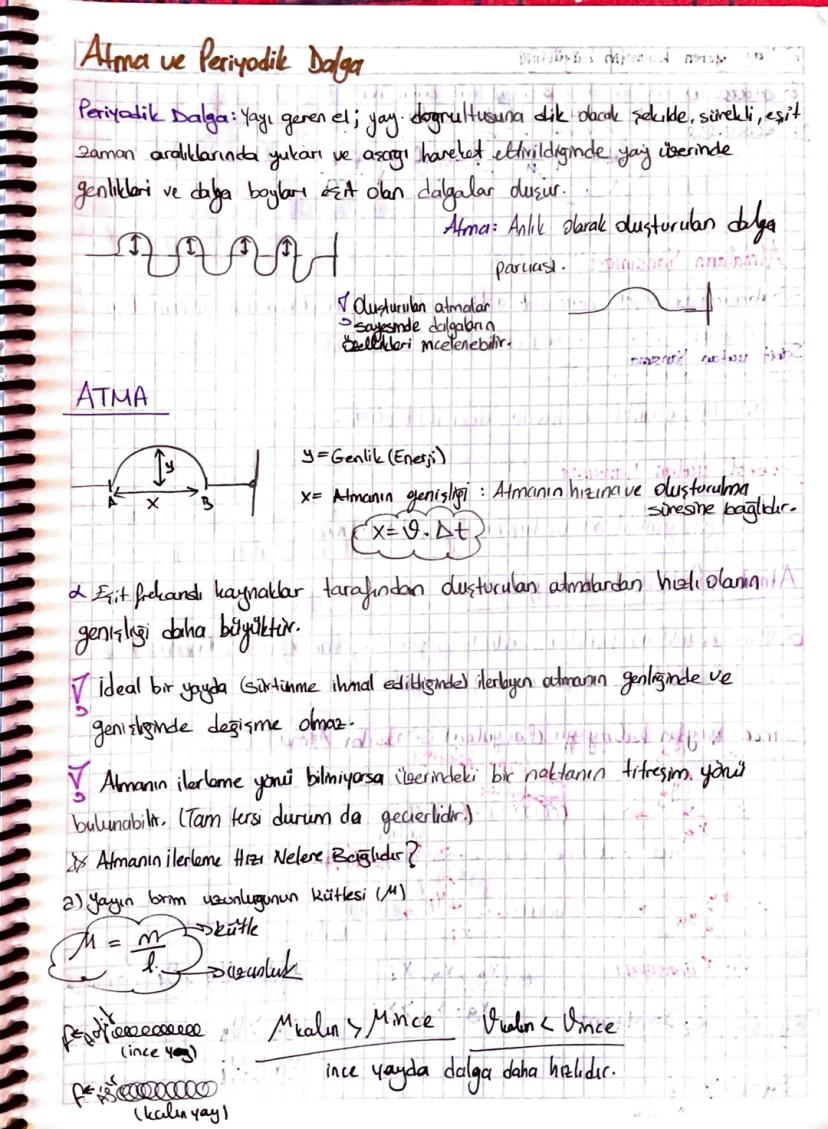 Atma ve Periyodik Dalga
Periyodik Dalga: Yayı geren el; yay doğrultusuna dik olacak şekilde, sürekli, eşit
zaman aralıklarında yukarı ve aşağı hareket ettirildiğinde yay üzerinde
genlikleri ve dalga boyları eşit olan dalgalar oluşur.
Atma: Anlık olarak oluşturulan dalga
parçası.
Oluşturulan atmalar
sayesinde dalgaların
özellikleri incelenebilir.
ATMA
y
A x B
y = Genlik (Enerji)
x = Atmanın genişliği : Atmanın hızına ve oluşturulma
süresine bağlıdır.
x = ϑ . Δt
α Eşit frekanslı kaynaklar tarafından oluşturulan atmalardan hızlı olanın
genişliği daha büyüktür.
İdeal bir yayda (sürtünme ihmal edildiğinde) ilerleyen atmanın genliğinde ve
genişliğinde değişme olmaz.
Atmanın ilerleme yönü biliniyorsa üzerindeki bir noktanın titreşim yönü
bulunabilir. (Tam tersi durum da geçerlidir.)
Atmanın ilerleme Hızı Nelere Bağlıdır?
a) Yayın birim uzunluğunun kütlesi (μ)
μ = m / l
kütle
uzunluk
(ince yay)
μkalın > μince ϑkalın < ϑince
ince yayda dalga daha hızlıdır.
(kalın yay)